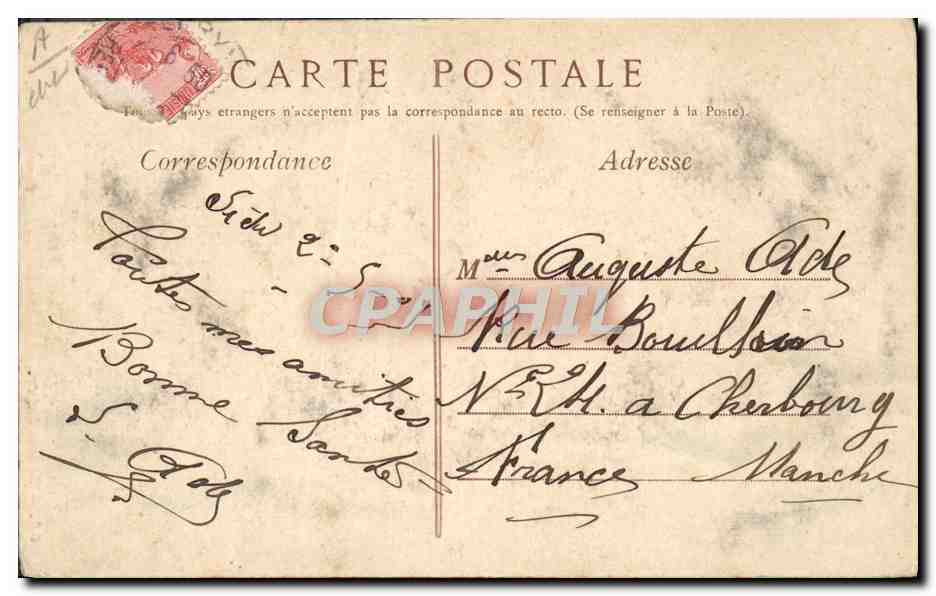 CARTE POSTALE
pays etrangers n'acceptent pas la correspondance au recto. (Se renseigner à la Poste).
Correspondance
Adresse
Toutes mes amitiés
Bonne Santé
Ade
CPARHIL
Mdes Auguste Ade
Rue
No 24. a Cherbourg
France Manche